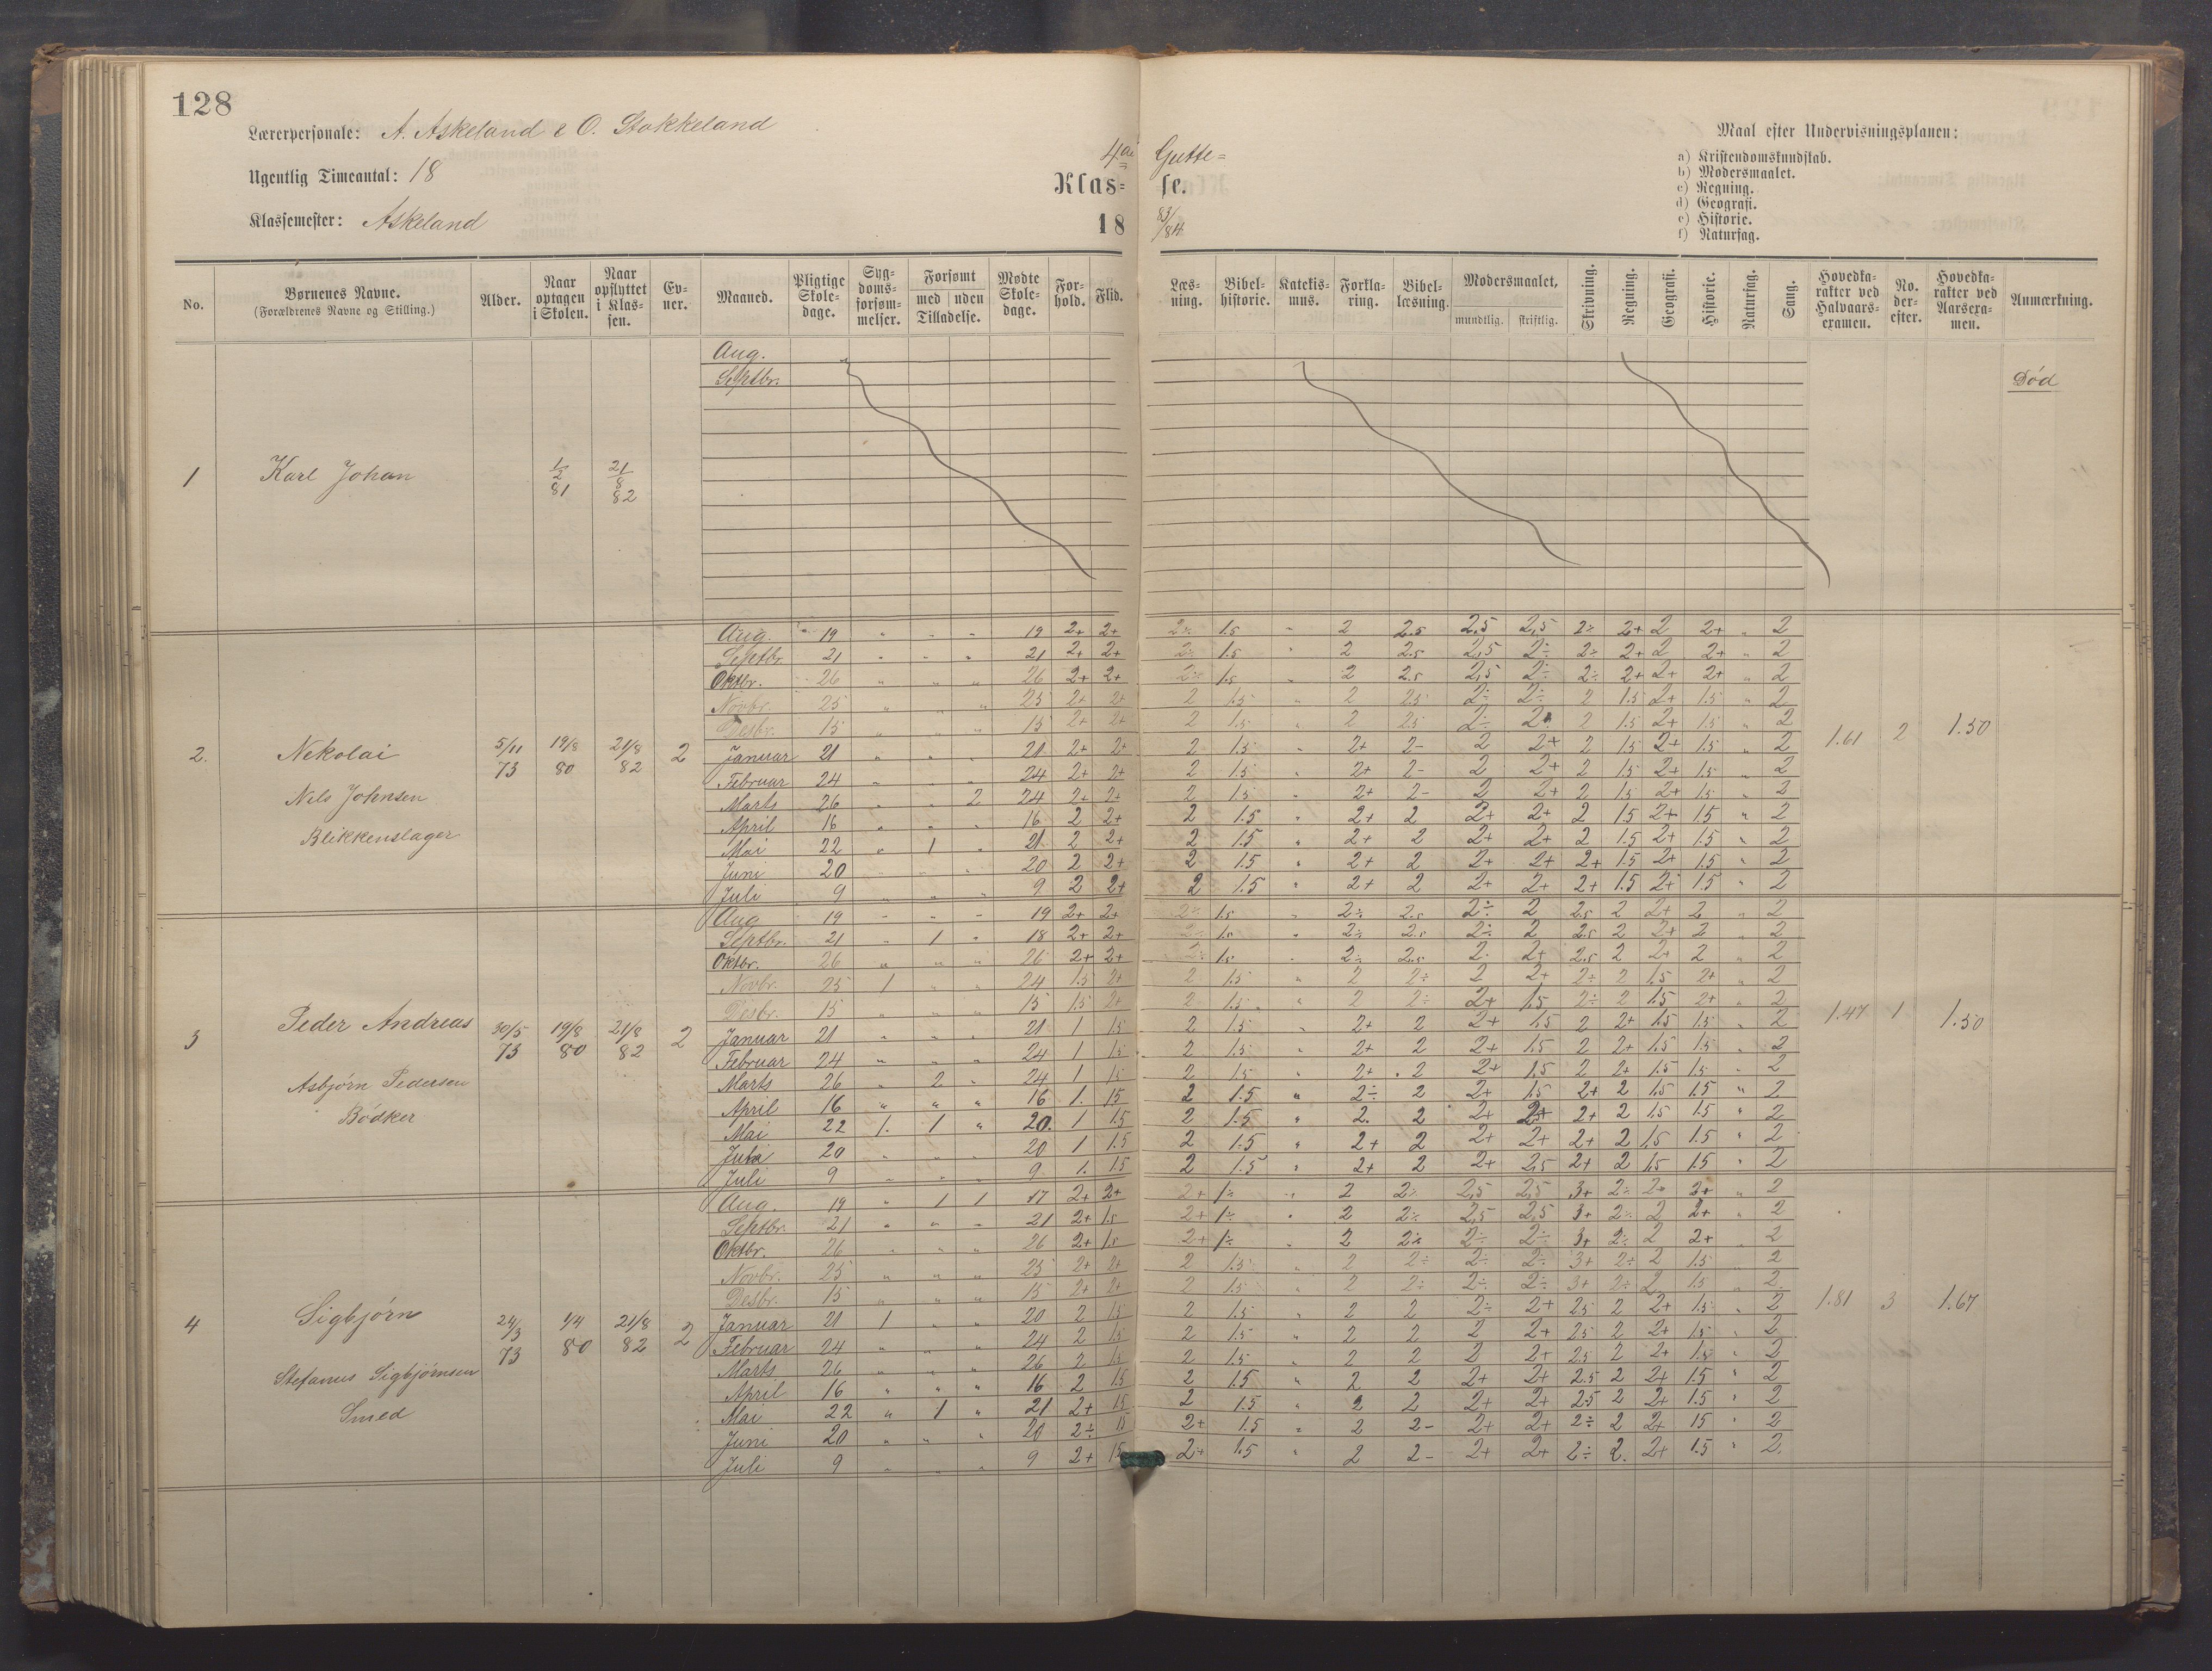 128
Lærerpersonale: A. Askeland & O. Stokkeland
Ugentlig Timeantal: 18
Klassemester: Askeland
4a Gutte=
Klas= se.
18 83/84
Maal efter Undervisningsplanen:
a) Kristendomskundskab.
b) Modersmaalet.
c) Regning.
d) Geografi.
e) Historie.
f) Naturfag.
No. Børnenes Navne. (Forældrenes Navne og Stilling.) Alder. Naar optagen i Skolen. Naar opflyttet i Klassen. Evner. Maaned. Pligtige Skoledage. Sygdomsforsømmelser. Forsømt med uden Tilladelse. Mødte Skoledage. Forhold. Flid. Læsning. Bibelhistorie. Katekismus. Forklaring. Bibellæsning. Modersmaalet, mundtlig. skriftlig. Skrivning. Regning. Geografi. Historie. Naturfag. Sang. Hovedkarakter ved Halvaarsexamen. No. derefter. Hovedkarakter ved Aarsexamen. Anmærkning.
Aug.
Septbr.
Død
1 Karl Johan 1/2 81 21/8 82
Aug. 19 " " " 19 2+ 2+ 2÷ 1.5 " 2 2.5 2,5 2,5 2÷ 2+ 2 2+ " 2
Septbr. 21 " " " 21 2+ 2+ 2÷ 1.5 " 2 2.5 2,5 2÷ 2÷ 2+ 2 2+ " 2
Oktbr. 26 " " " 26 2+ 2+ 2÷ 1.5 " 2 2.5 2,5 2÷ 2÷ 2+ 2+ 2+ " 2
Novbr. 25 " " " 25 2+ 2+ 2 1.5 " 2 2.5 2÷ 2÷ 2 1.5 2+ 1.5 " 2
Desbr. 15 " " " 15 2+ 2+ 2 1.5 " 2 2.5 2÷ 2 1.5 2+ 1.5 " 2
2. Nekolai 5/11 73 19/8 80 21/8 82 2 1.61 2 1.50
Januar 21 " " " 21 2+ 2+ 2 1.5 " 2+ 2- 2 2+ 2 1.5 2+ 1.5 " 2
Februar 24 " " " 24 2+ 2+ 2 1.5 " 2+ 2- 2 2+ 2 1.5 2+ 1.5 " 2
Nils Johnsen
Marts 26 " " 2 24 2+ 2+ 2 1.5 " 2+ 2- 2 2+ 2 1.5 2+ 1.5 " 2
April 16 " " " 16 2 2+ 2 1.5 " 2+ 2 2+ 2+ 2 1.5 2+ 1.5 " 2
Blikkenslager
Mai 22 " 1 " 21 2 2+ 2 1.5 " 2+ 2 2+ 2+ 2 1.5 2+ 1.5 " 2
Juni 20 " " " 20 2 2+ 2 1.5 " 2+ 2 2+ 2+ 2+ 1.5 2+ 1.5 " 2
Juli 9 " " " 9 2 2+ 2 1.5 " 2+ 2 2+ 2+ 2+ 1.5 2+ 1.5 " 2
Aug 19 " " " 19 2+ 2+ 2÷ 1.5 " 2÷ 2.5 2÷ 2 2.5 2 2+ 2 " 2
Septbr. 21 " 1 " 18 2+ 2+ 2÷ 1.5 " 2÷ 2.5 2÷ 2 2.5 2 2+ 2 " 2
Oktbr. 26 " " " 26 2+ 2+ 2÷ 1.5 " 2÷ 2.5 2 2+ 2.5 2 2+ 2 " 2
Novbr. 25 1 " " 24 1.5 2+ 2 1.5 " 2 2÷ 2 2+ 2÷ 2 1.5 2+ " 2
Desbr. 15 " " " 15 1.5 2+ 2 1.5 " 2 2÷ 2+ 1.5 2÷ 2 1.5 2+ " 2
3 Peder Andreas 30/5 73 19/8 80 21/8 82 2 1.47 1 1.50
Januar 21 " " " 21 1 1.5 2 1.5 " 2+ 2 2+ 1.5 2 2+ 1.5 1.5 " 2
Februar 24 " " " 24 1 1.5 2 1.5 " 2+ 2 2+ 1.5 2 2+ 1.5 1.5 " 2
Asbjørn Pedersen
Marts 26 " 2 " 24 1 15 2 1.5 " 2+ 2 2+ 1.5 2 2+ 1.5 1.5 " 2
April 16 " " " 16 1. 15 2 1.5 " 2÷ 2 2+ 1.5 2+ 2 1.5 1.5 " 2
Bødker
Mai 22 1. 1 " 20. 1 1.5 2 1.5 " 2. 2 2+ 2+ 2+ 2 1.5 1.5 " 2
20 " " " 20 1 1.5 2 1.5 " 2+ 2 2+ 2+ 2+ 2 1.5 1.5 " 2
Juli 9 " " " 9 1. 1.5 2 1.5 " 2+ 2 2+ 2,5 2+ 2 1.5 1.5 " 2
Aug. 19 " 1 1 17 2+ 2+ 2+ 1÷ " 2 2÷ 2,5 2,5 3+ 2÷ 2+ 2+ " 2
Septbr. 21 " " " 21 2+ 1.5 2+ 1÷ " 2 2÷ 2,5 2,5 3+ 2÷ 2 2+ " 2
Oktbr. 26 " " " 26 2+ 1.5 2+ 1÷ " 2 2÷ 2÷ 2÷ 3+ 2÷ 2 2+ " 2
Novbr. 25 " " " 25 2+ 2+ 2 1.5 " 2 2÷ 2÷ 2÷ 3+ 2÷ 2 1.5 " 2
Desbr. 15 " " " 15 2+ 2+ 2 1.5 " 2 2÷ 2÷ 2÷ 3+ 2÷ 2 1.5 " 2
4 Sigbjørn 24/3 73 1/4 80 21/8 82 2 1.81 3 1.67
Januar 21 1 " " 20 2 1.5 2 1.5 " 2 2 2÷ 2+ 2.5 2 2+ 1.5 " 2
Februar 24 " " " 24 2 1.5 2 1.5 " 2 2 2 2+ 2.5 2 2+ 1.5 " 2
Stefanus Sigbjørnsen
Marts 26 " " " 26 2 1.5 2 1.5 " 2 2 2 2+ 2.5 2 2+ 1.5 " 2
April 16 " " " 16 2 1.5 2 1.5 " 2 2 2+ 2+ 2.5 2 2+ 1.5 " 2
Smed
Mai 22 " 1 " 21 2+ 15 2 1.5 " 2 2 2+ 2+ 2.5 2 2+ 1.5 " 2
Juni 20 " " " 20 2÷ 15 2+ 1.5 " 2 2- 2+ 2+ 2÷ 2 2+ 15 " 2
Juli 9 " " " 9 2+ 15 2+ 1.5 " 2 2- 2+ 2+ 2÷ 2. 2+ 1.5 " 2